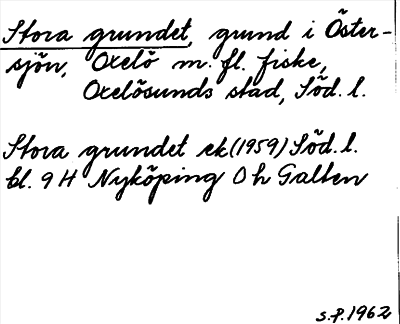 Stora grundet, grund i Öster-
sjön, Oxelö m. fl. fiske,
Oxelösunds stad, Söd. l.
Stora grundet ek (1959) Söd. l.
bl. 9 H Nyköping O h Galten
S.P. 1962